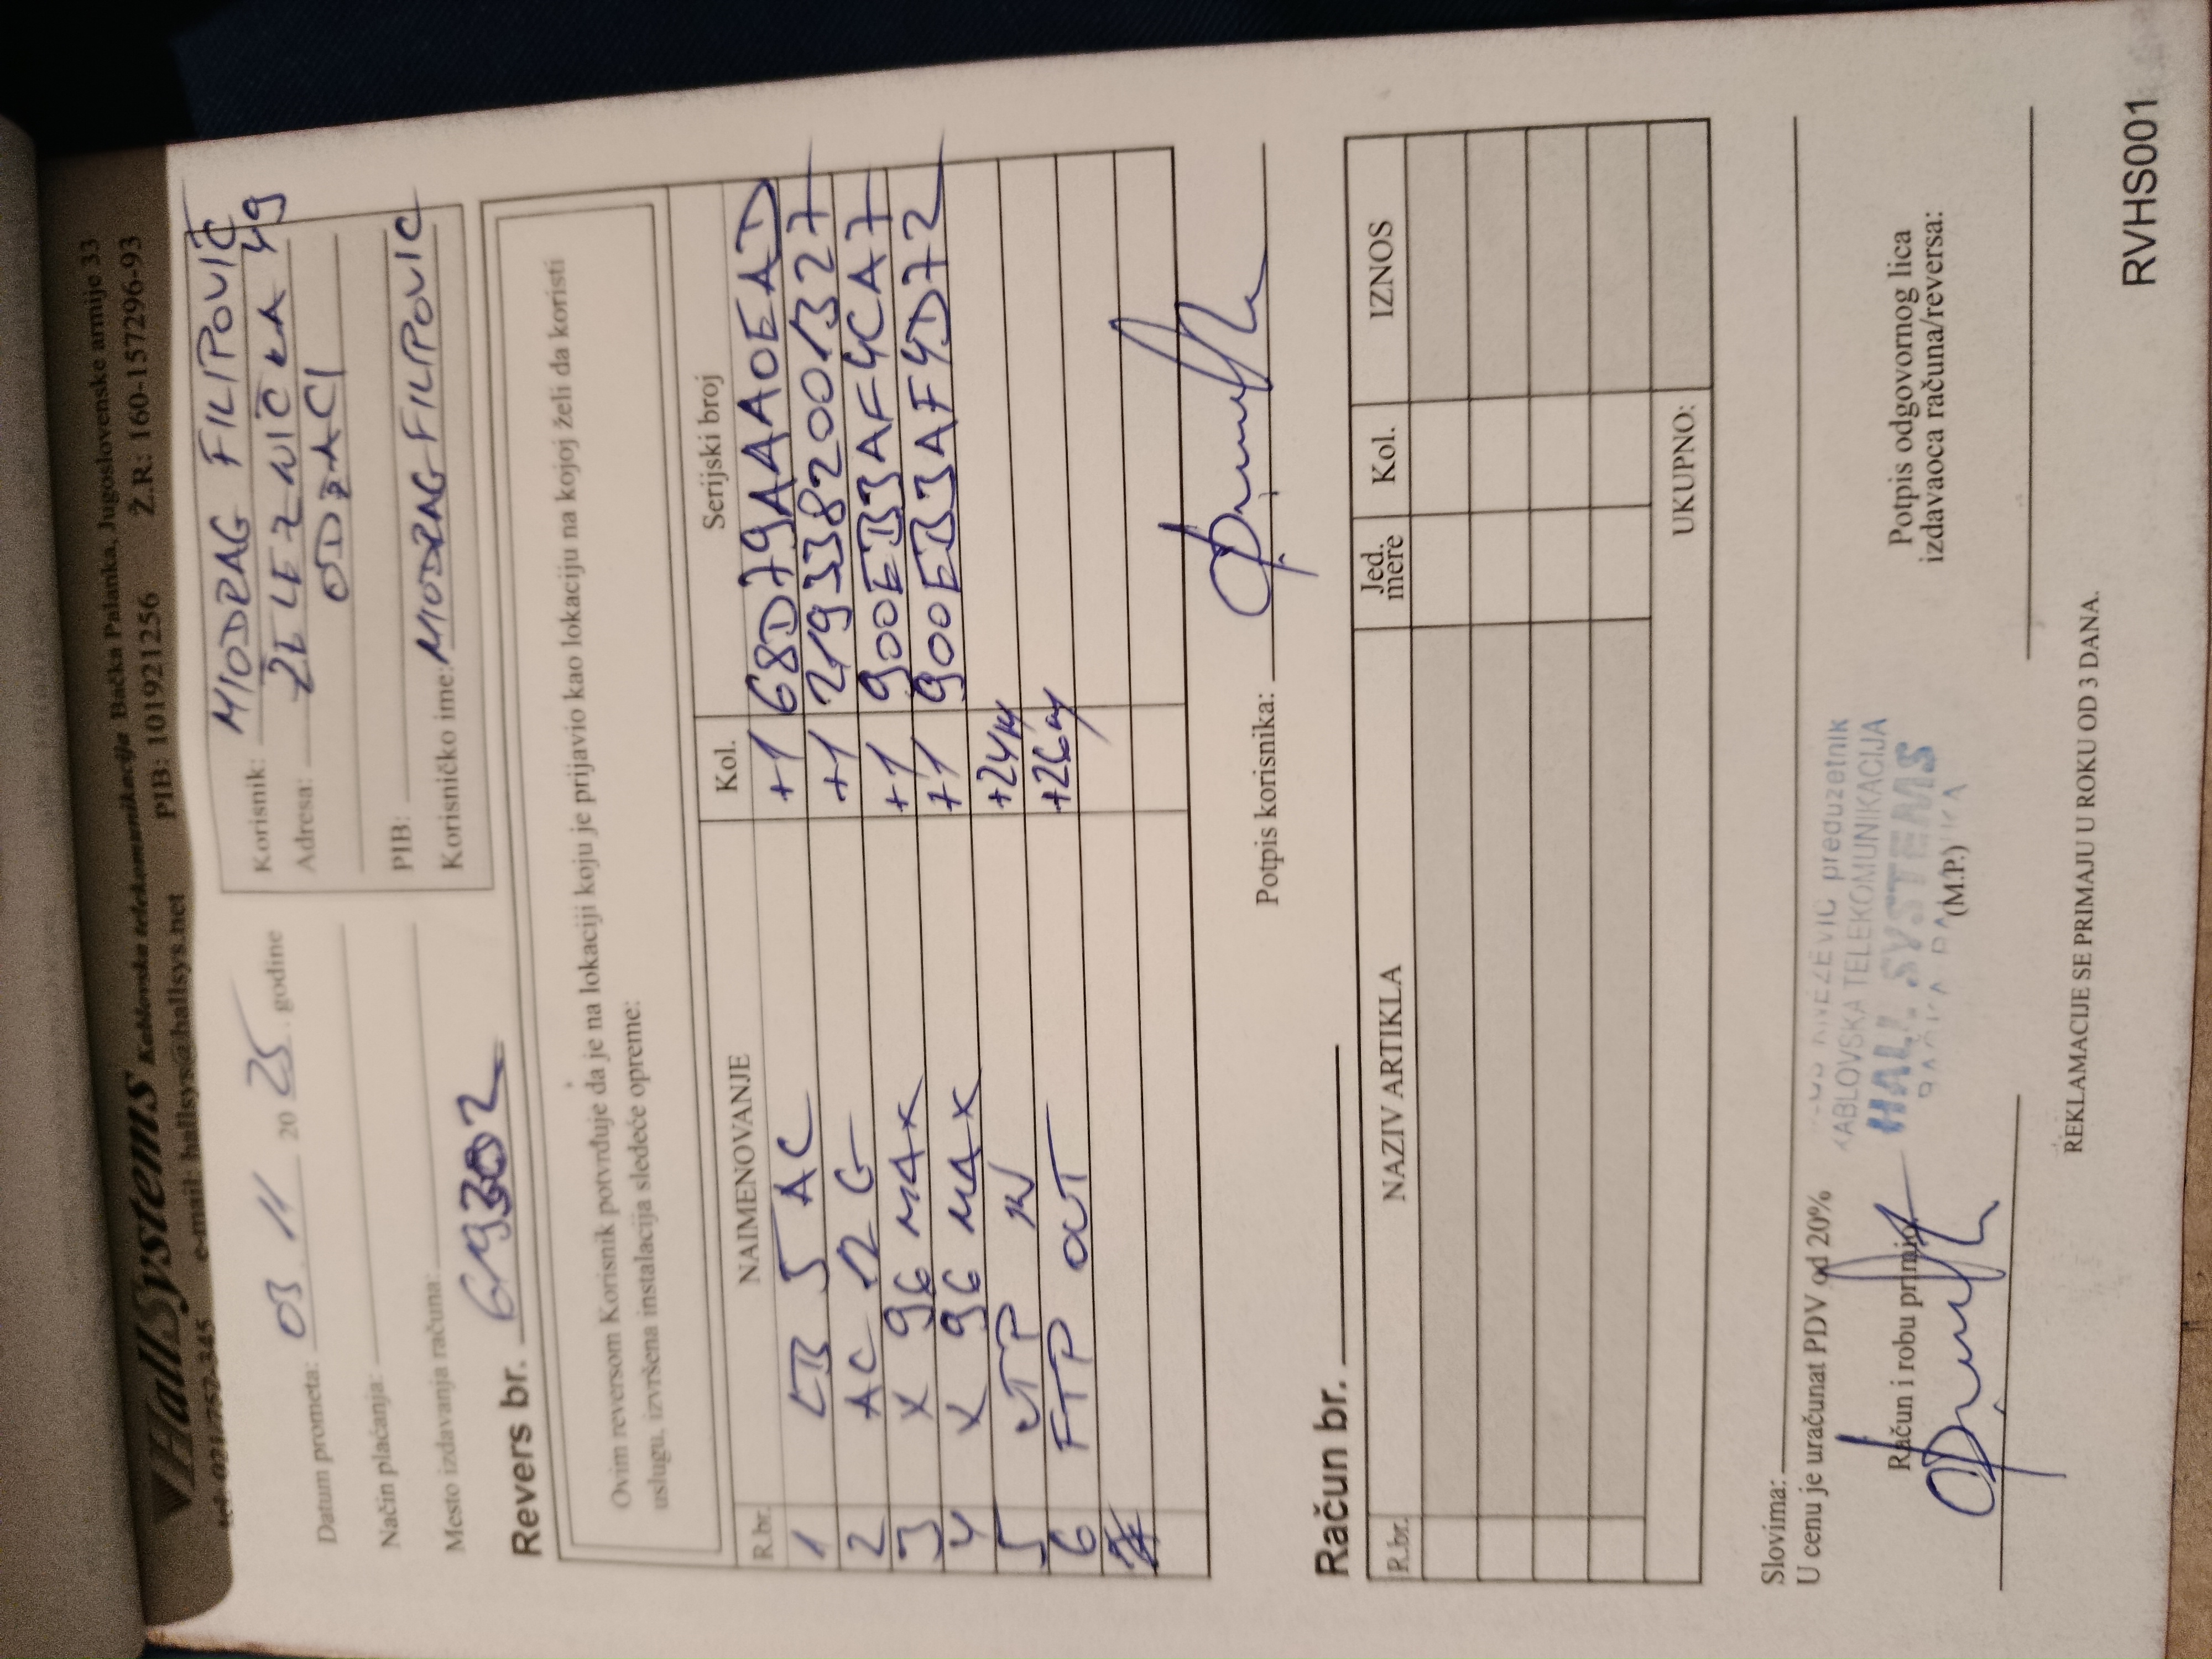 HallSystems Kablovska telekomunikacija Bačka Palanka, Jugoslovenske armije 33
e-mail: hallsys@hallsys.net PIB: 101921256 Ž.R: 160-157296-93
Datum prometa: 03. 11 2025. godine
Način plaćanja:
Mesto izdavanja računa:
Korisnik: MIODRAG FILIPOVIĆ
Adresa: ŽELEZNIČKA 49
ODŽACI
PIB:
Korisničko ime: MIODRAG FILIPOVIĆ
Revers br. 619302
Ovim reversom Korisnik potvrđuje da je na lokaciji koju je prijavio kao lokaciju na kojoj želi da koristi
uslugu, izvršena instalacija sledeće opreme:
R.br. NAIMENOVANJE Kol. Serijski broj
1 LB 5 AC +1 68D79AAA0EAD
2 AC 12 G +1 2193382001327
3 X 96 MAX +1 900EB3AF4CA7
4 X 96 MAX +1 900EB3AF4D72
5 UTP IN +24
6 FTP OUT +26
Potpis korisnika:
Račun br.
R.br. NAZIV ARTIKLA Jed. mere Kol. IZNOS
UKUPNO:
Slovima:
U cenu je uračunat PDV od 20%
Račun i robu primio
KNEŽEVIĆ preduzetnik
KABLOVSKA TELEKOMUNIKACIJA
HALL SYSTEMS
BAČKA PALANKA
(M.P.)
Potpis odgovornog lica
izdavaoca računa/reversa:
REKLAMACIJE SE PRIMAJU U ROKU OD 3 DANA.
RVHS001